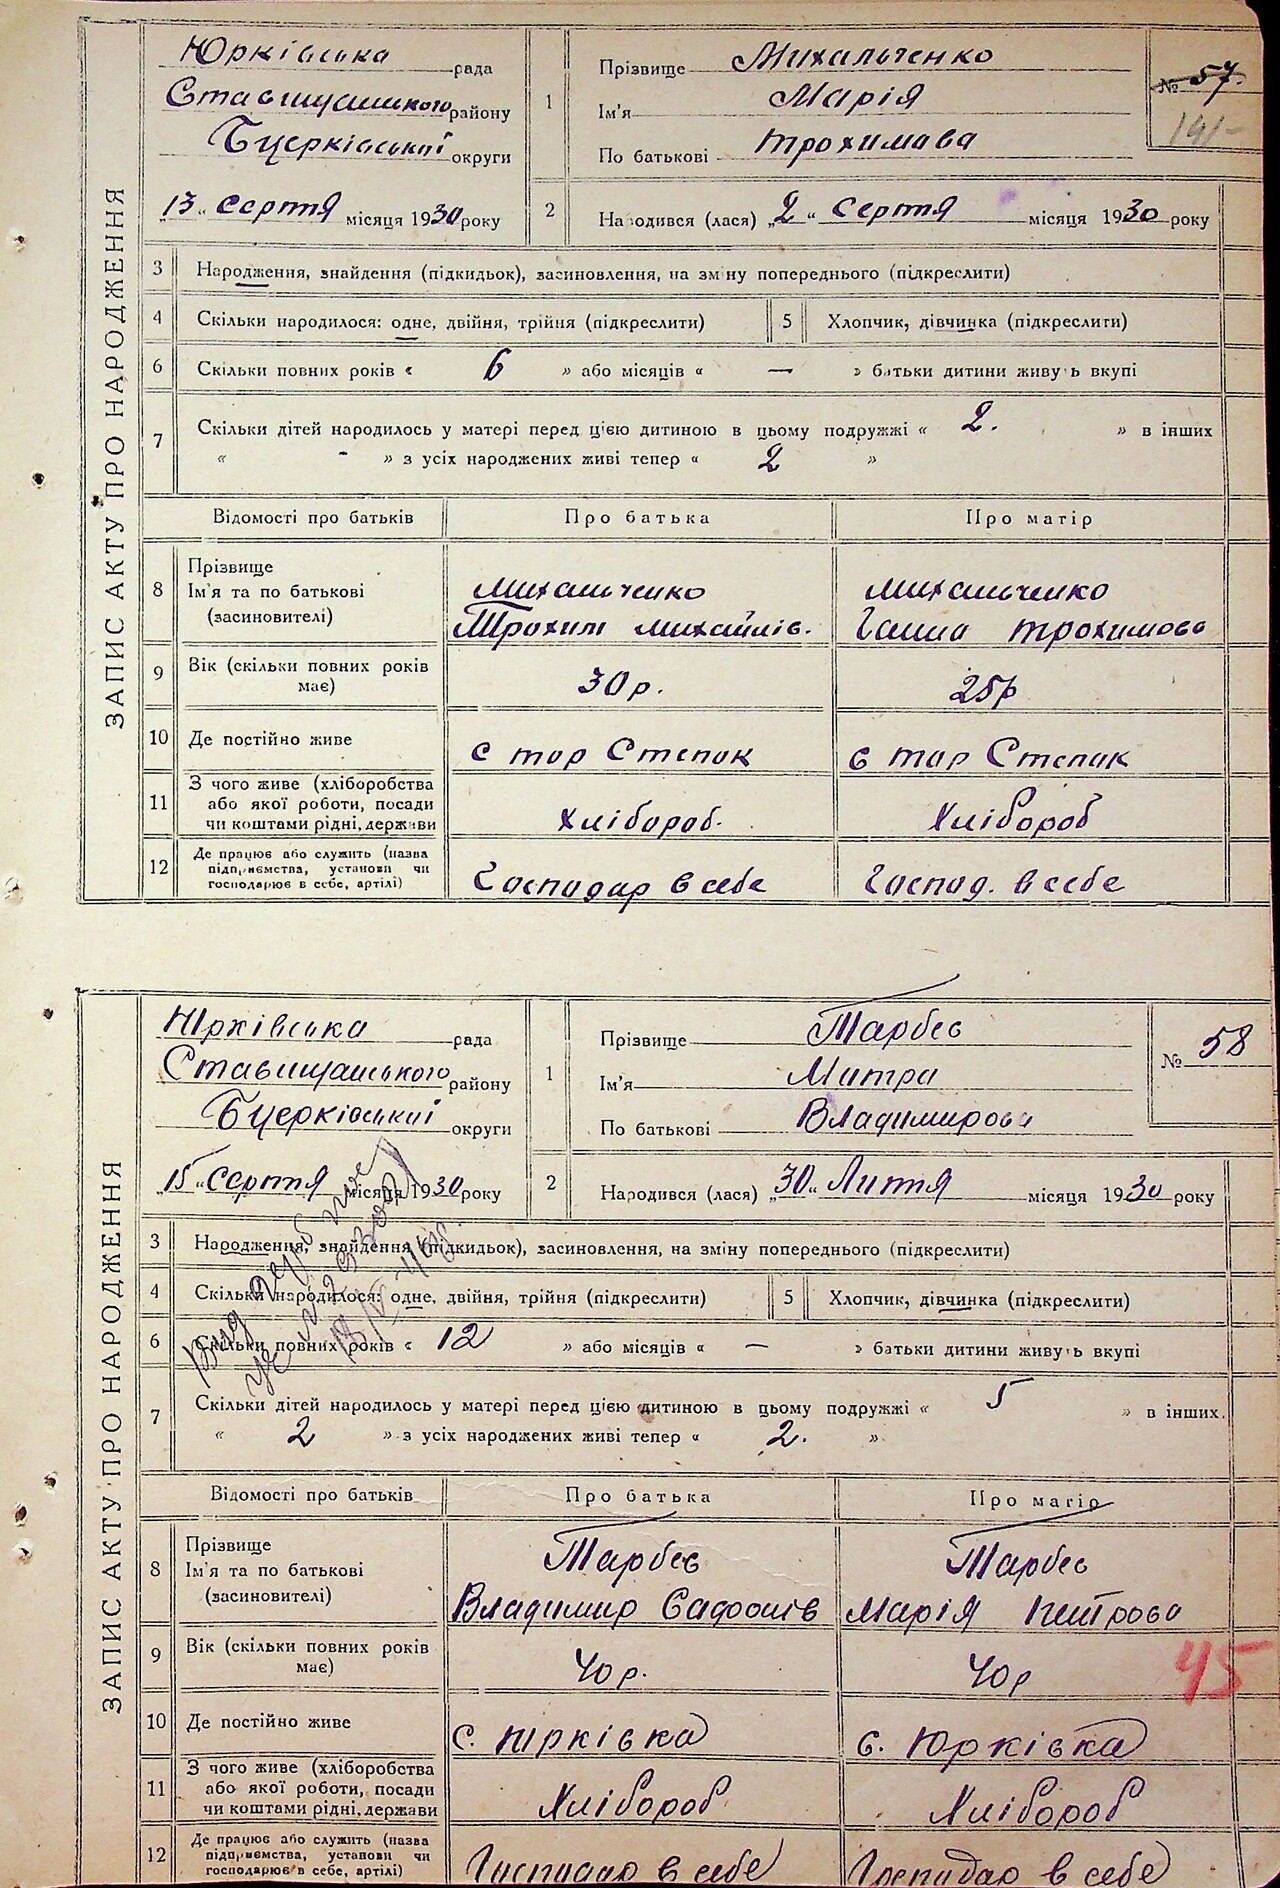 ЗАПИС АКТУ ПРО НАРОДЖЕННЯ
Юрківська рада
Ставищанського району
Бцерківської округи
„13“ серпня місяця 1930 року
1
Прізвище Михальченко
Ім'я Марія
По батькові Трохимова
№ 57.
191-
2
Народився (лася) „2“ серпня місяця 1930 року
3 Народження, знайдення (підкидьок), засиновлення, на зміну попереднього (підкреслити)
4 Скільки народилося: одне, двійня, трійня (підкреслити) 5 Хлопчик, дівчинка (підкреслити)
6 Скільки повних років « 6 » або місяців « — » батьки дитини живуть вкупі
7 Скільки дітей народилось у матері перед цією дитиною в цьому подружжі « 2. » в інших
« - » з усіх народжених живі тепер « 2 »
Відомості про батьків Про батька Про матір
8 Прізвище
Ім'я та по батькові
(засиновителі)
Михальченко
Трохим Михайлів.
Михальченко
Ганна Трохимова
9 Вік (скільки повних років
має)
30 р.
25 р
10 Де постійно живе с тор Степок с тор Степок
11 З чого живе (хліборобства
або якої роботи, посади
чи коштами рідні, держави
Хлібороб. Хлібороб
12 Де працює або служить (назва
підприємства, установи чи
господарює в себе, артілі)
Господар в себе Господ. в себе
ЗАПИС АКТУ ПРО НАРОДЖЕННЯ
Юрківська рада
Ставищанського району
Бцерківської округи
„15“ Серпня місяця 1930 року
1
Прізвище Тарбєє
Ім'я Митра
По батькові Владимирова
№ 58
2
Народився (лася) „30“ Липня місяця 1930 року
3 Народження, знайдення (підкидьок), засиновлення, на зміну попереднього (підкреслити)
4 Скільки народилося: одне, двійня, трійня (підкреслити) 5 Хлопчик, дівчинка (підкреслити)
6 Скільки повних років « 12 » або місяців « — » батьки дитини живуть вкупі
7 Скільки дітей народилось у матері перед цією дитиною в цьому подружжі « 5 » в інших.
« 2 » з усіх народжених живі тепер « 2. »
Відомості про батьків Про батька Про матір
8 Прізвище
Ім'я та по батькові
(засиновителі)
Владимир
Марія Петрова
9 Вік (скільки повних років
має)
40 р.
40 р
45
10 Де постійно живе с. Юрківка с. Юрківка
11 З чого живе (хліборобства
або якої роботи, посади
чи коштами рідні, держави
Хлібороб. Хлібороб
12 Де працює або служить (назва
підприємства, установи чи
господарює в себе, артілі)
Господар в себе Господар в себе